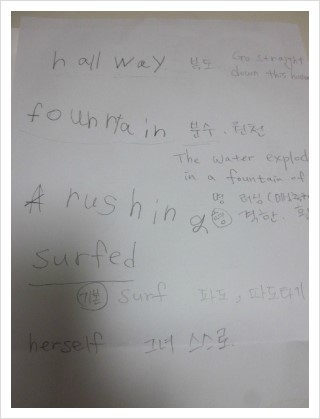 hall way 복도 Go straight
down this
fountain 분수. 원천
The water explod
in a fountain of
A rushing 명 러싱
형 격한.
surfed
기본 surf 파도, 파도타기
herself 그녀 스스로